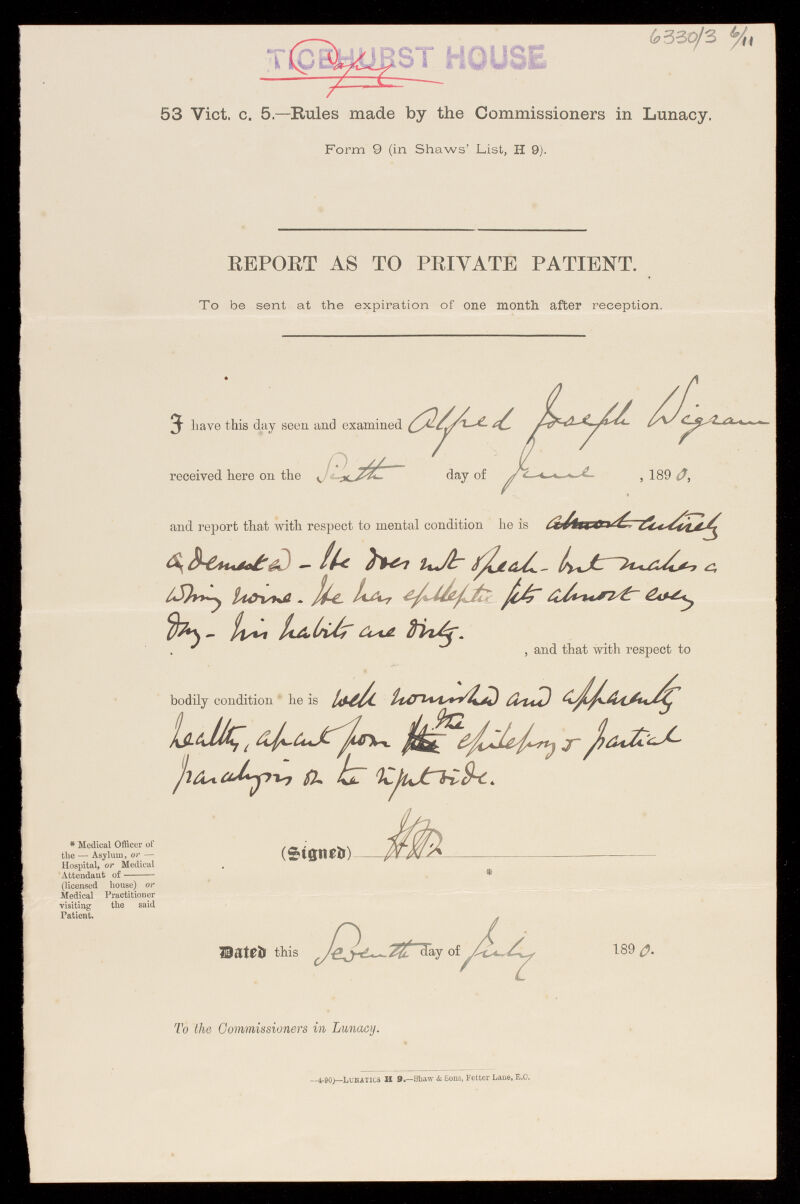 6330/3 6/11
TICEHURST HOUSE
Copy
53 Vict. c. 5.—Rules made by the Commissioners in Lunacy.
Form 9 (in Shaws' List, H 9).
REPORT AS TO PRIVATE PATIENT.
To be sent at the expiration of one month after reception.
I have this day seen and examined Alfred Joseph Wigram
received here on the Sixth day of June , 1890,
and report that with respect to mental condition he is almost entirely
demented - He does not speak - but makes a
whiny noise. He has epileptic fits almost every
day - his habits are dirty.
, and that with respect to
bodily condition he is well nourished and apparently
healthy, apart from the epilepsy & partial
paralysis on the right side.
* Medical Officer of
the — Asylum, or —
Hospital, or Medical
Attendant of ———
(licensed house) or
Medical Practitioner
visiting the said
Patient.
(Signed)
*
Dated this Seventh day of July 1890.
To the Commissioners in Lunacy.
—4-90)—LUNATICS H 9.—Shaw & Sons, Fetter Lane, E.C.